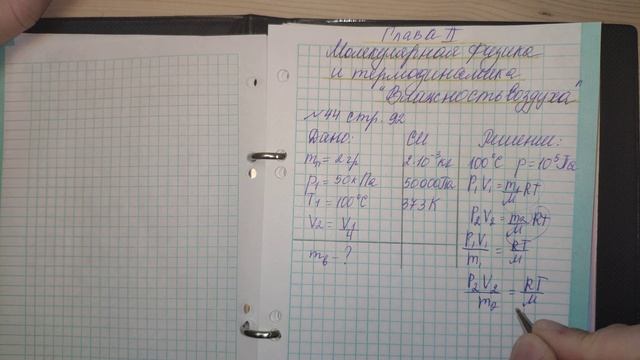 Глава II
Молекулярная физика
и термодинамика
"Влажность воздуха"
№44 стр. 92
Дано:
mп = 2 гр
p₁ = 50 кПа
T₁ = 100°C
V₂ = V₁/4
mв - ?
СИ
2·10⁻³ кг
50000 Па
373 К
Решение:
100°C p = 10⁵ Па
P₁V₁ = m₁/M RT
P₂V₂ = m₂/M RT
P₁V₁/m₁ = RT/M
P₂V₂/m₂ = RT/M